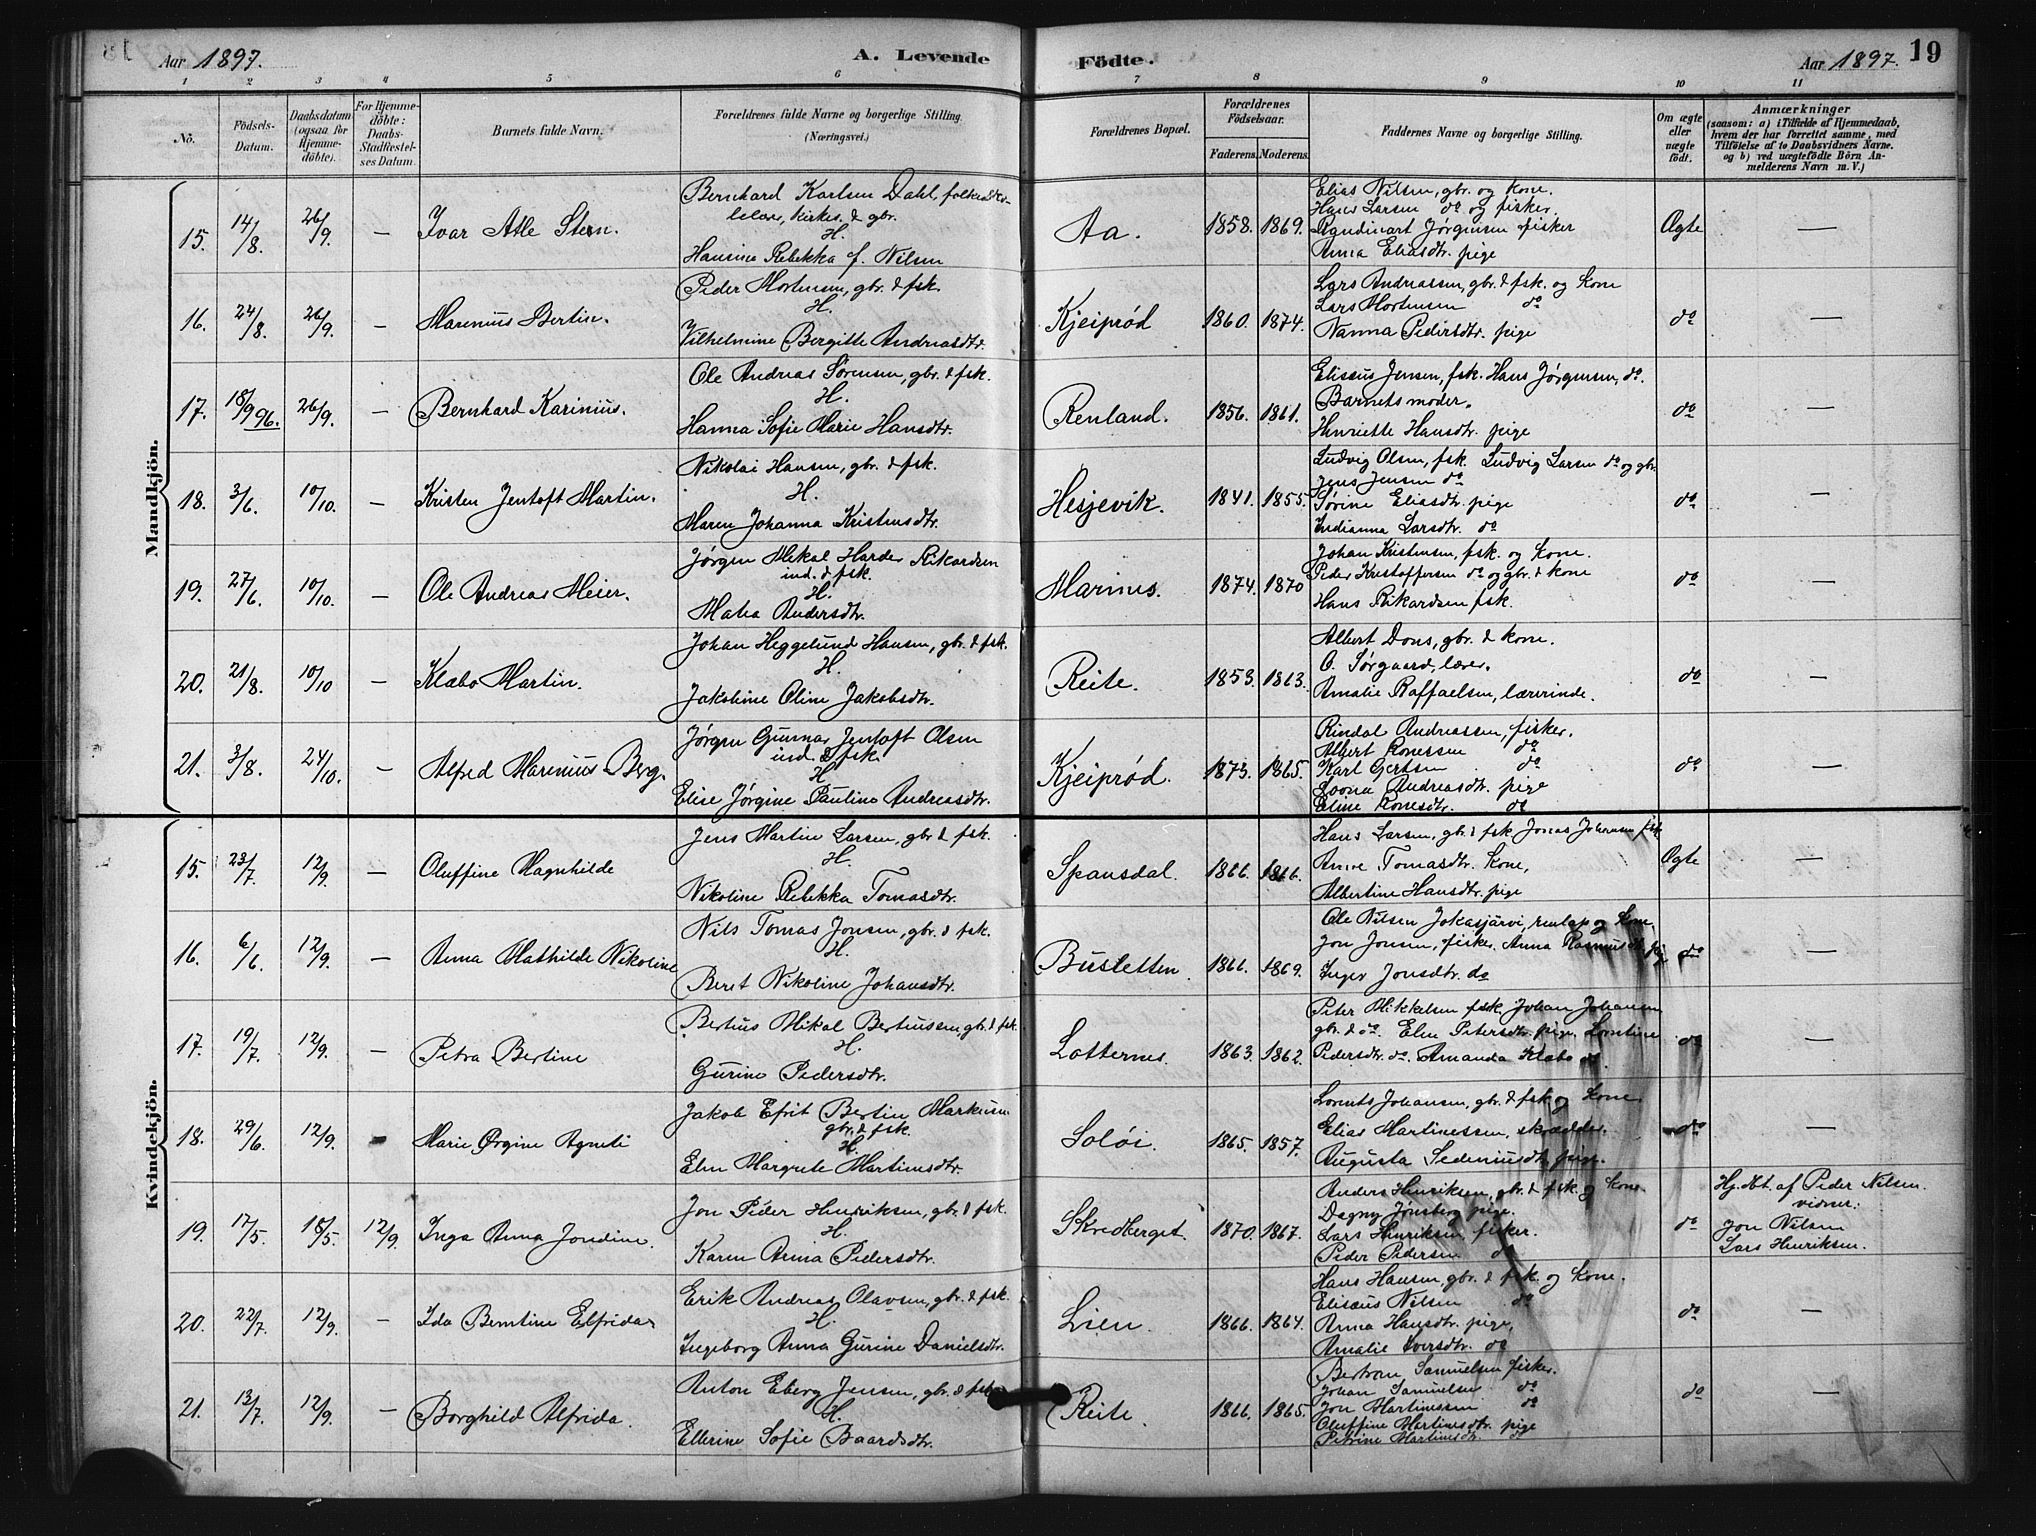 Aar 1897. A. Levende Födte. Aar 1897. 19
1 2 3 4 5 6 7 8 9 10 11
No.
Födsels-
Datum.
Daabsdatum
(ogsaa for
Hjemme-
döbte).
For Hjemme-
döbte:
Daabs-
Stadfæstel-
ses Datum.
Barnets fulde Navn.
Forældrenes fulde Navne og borgerlige Stilling
(Næringsvei.)
Forældrenes Bopæl.
Forældrenes
Födselsaar.
Faderens. Moderens.
Faddernes Navne og borgerlige Stilling.
Om ægte
eller
uægte
födt.
Anmærkninger
(saasom: a) i Tilfælde af Hjemmedaab,
hvem der har forrettet samme, med
Tilföielse af to Daabsvidners Navne.
og b) ved uægtefödte Börn An-
melderens Navn m. V.)
Mandkjön.
15. 14/8. 26/9. — Ivar Atle Steen.
Bernhard Karlsen Dahl,
lelærer, kirkes. & gbr.
H.
Hansine Rebekka f. Nilsen
Aa. 1858. 1869.
Elias Nilsen, gbr. og kone.
Hans Larsen do og fisker.
Jørgensen fisker
Anna Eliasdtr. pige
Ægte —
16. 24/8. 26/9. — Marenius Bertin.
Peder Mortensen, gbr. & fsk.
H.
Vilhelmine Bergitte Andreasdtr.
Kjeiprød 1860. 1874.
Lars Andreassen, gbr. & fsk. og kone
Lars Mortensen do
Nanna Pedersdtr. pige
do —
17. 18/9 96. 26/9. — Bernhard Karinius.
Ole Andreas Sørensen, gbr. & fsk.
H.
Hanna Sofie Marie Hansdtr.
Renland. 1856. 1861.
Elisæus Jensen, fsk. Hans Jørgensen, do.
Barnets moder.
Henriette Hansdtr. pige
do —
18. 3/6. 10/10. — Kristen Jentoft Martin.
Nikolai Hansen, gbr. & fsk.
H.
Maren Johanna Kristensdtr.
Hesjevik. 1841. 1855.
Ludvig Olsen, fsk. Ludvig Larsen do og gbr.
Jens Jensen do
Sørine Eliasdtr. pige
Indianna Larsdtr. do
do —
19. 27/6. 10/10. — Ole Andreas Meier.
Jørgen Mikal Harder Rikardsen
ind. & fsk.
H.
Matea Andersdtr.
Marinus. 1874. 1870
Johan Kristensen, fsk. og kone.
Peder Kristoffersen do og gbr. & kone
Hans Rikardsen fsk.
do —
20. 21/8. 10/10 — Klæbo Martin.
Johan Heggelund Hansen, gbr. & fsk.
H.
Jakobine Oline Jakobsdtr.
Reite. 1853. 1863.
Albert Dons, gbr. & kone.
O. Sørgaard, lærer.
Amalie Raffaelsen, lærerinde.
do —
21. 3/8. 24/10. — Alfred Marenius Berg.
Jørgen Gunnar Jentoft Olsen
ind. & fsk.
H.
Elise Jørgine Pauline Andreasdtr.
Kjeiprød. 1873. 1865.
Rindal Andreassen, fisker.
Albert Konessen do
Karl Gertsen do
Lovna Andreasdtr. pige
Eline Konesdtr. do
do —
Kvindekjön.
15. 23/7. 12/9. — Oluffine Magnhilde
Jens Martin Larsen, gbr. & fsk.
H.
Nikoline Rebekka Tomasdtr.
Spansdal. 1866. 1866.
Hans Larsen, gbr. & fsk Jonas Johansen fsk.
Anne Tomasdtr. kone,
Albertine Hansdtr. pige
Ægte —
16. 6/6. 12/9. — Anna Mathilde Nikoline
Nils Tomas Jonsen, gbr. & fsk.
H.
Beret Nikoline Johansdtr.
Busletten. 1866. 1869.
Ole Nilsen Jokasjärvi, renlap og kone
Jon Jonsen, fisker. Anna Rasmusdtr. pige
Inger Jonsdtr. do
do —
17. 19/7. 12/9. — Petra Bertine
Bertius Mikal Bertiussen, gbr. & fsk.
H.
Gurine Pedersdtr.
Lotternes. 1863. 1862.
Peter Mikkelsen fsk. Johan Johansen
gbr. & do. Elen Petersdtr. pige,
Pedersdtr. do. Amanda Klæbo do
do —
18. 29/6. 12/9. — Marie Ørgine Agneti
Jakob Efrit Bertin Markusen
gbr. & fsk.
H.
Elen Margrete Martinusdtr.
Soløi. 1865. 1857.
Lorents Johansen, gbr. & fsk og kone
Elias Martinessen, skrædder.
Augusta Sedeniusdtr. pige.
do —
19. 17/5. 18/5. 12/9. Inga Anna Jondine.
Jon Peder Henriksen, gbr. & fsk.
H.
Karen Anna Pedersdtr.
Skredberget. 1870. 1867.
Anders Henriksen, gbr. & fsk. og kone.
Dagny Jønsberg pige.
Lars Henriksen, fisker.
Peder Pedersen do
do
Hj. dbt. af Peder Nilsen.
vidner:
Jon Nilsen
Lars Henriksen.
20. 22/7. 12/9. — Ida Berntine Elfrida
Erik Andreas Olavsen, gbr. & fsk.
H.
Ingeborg Anna Gurine Danielsdtr.
Lien. 1866. 1864.
Hans Hansen, gbr. & fsk. og kone.
Elisæus Nilsen do
Anna Hansdtr. pige,
Amalie Iversdtr. do
do —
21. 13/7. 12/9. — Borghild Alfrida.
Anton Eberg Jensen, gbr. & fsk.
H.
Ellerine Sofie Baardsdtr.
Reite. 1866. 1865.
Bertram Samuelsen fisker.
Johan Samuelsen do
Jon Martinessen do
Oluffine Martinesdtr. pige
Petrine Martinesdtr. do
do —